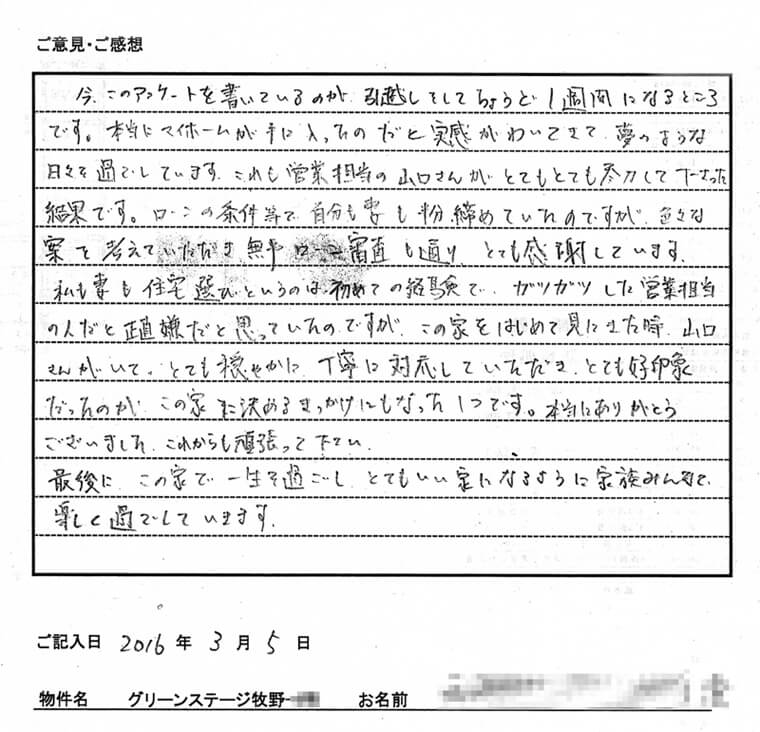 ご意見・ご感想
今、このアンケートを書いているのが、引越しをしてちょうど1週間になるところ
です。本当にマイホームが手に入ったのだと実感がわいてきて、夢のような
日々を過ごしています。これも営業担当の山口さんがとてもとても尽力して下さった
結果です。ローンの条件等で、自分も妻も締めていたのですが、色々な
案を考えていただき無事ローン審査も通り、とても感謝しています。
私も妻も住宅選びというのは初めての経験で、ガツガツした営業担当
の人だと正直嫌だと思っていたのですが、この家をはじめて見にきた時、山口
さんがいて、とても穏やかに、丁寧に対応していただき、とても好印象
だったのが、この家に決めるきっかけにもなった1つです。本当にありがとう
ございました。これからも頑張って下さい。
最後に、この家で一生を過ごし、とてもいい家になるように家族みんなで、
楽しく過ごしていきます。
ご記入日 2016 年 3 月 5 日
物件名 グリーンステージ牧野 お名前